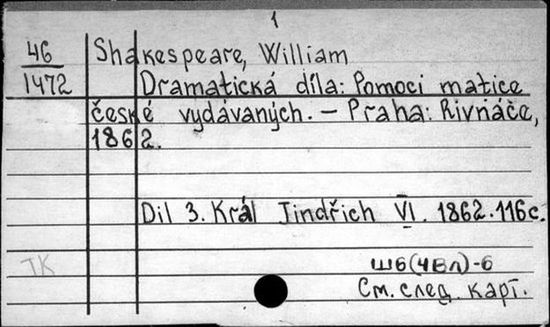 1
46
1472
Shakespeare, William
Dramatická díla: Pomoci matice
české vydávaných. – Praha: Rivnáče,
1862.
Dil 3. Král Jindřich VI. 1862. 116с.
TK
Ш6(4Вл)-6
См. след. карт.